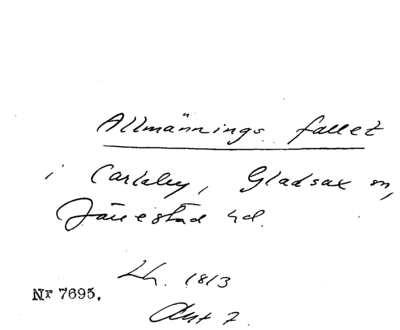 Allmännings fallet
i Carlaby, Gladsax sn,
Järrestad hd.
Lh. 1813
Akt 7.
Nr 7695.